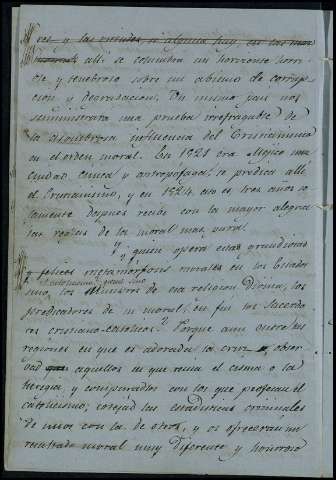 res y las virtudes si alguna hay, en las mas
allí se columbra un horizonte horri-
ble, y tenebroso sobre un abismo de corrup-
cion y degradacion. Un mismo pais nos
suministrara una prueba irrefragable de
la asombrosa influencia del Cristianismo
en el orden moral. En 1821 era Mejico una
Ciudad inculta y antropofaga; se predica allí
el Cristianismo, y en 1824. esto es, tres años so-
lamente despues recibe con la mayor alegria
las reglas de la moral mas pura.
Y ¿quien opera estas grandiosas
y felices metamorfosis morales en los Estados
El catolicismo,
sino, los Ministros de esa religion Divina, los
predicadores de su moral; en fin los Sacerdo-
tes cristiano-catolicos? Porque aun entre las
regiones en que es adorada la cruz, obser-
vad aquellos en que reina el cisma o la
heregia y comparadlos con los que profesan el
catolicismo; cotejad las estadisticas criminales
de unos con la de otros, y os ofreceran un
resultado moral muy diferente y honroso